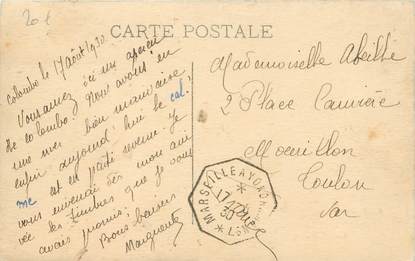 20 €
CARTE POSTALE
Colombo le 17 août 1930
Vous avez ici un aperçu
de Colombo. Nous avons eu
une mer bien mauvaise
enfin aujourd'hui le cal-
me est en partie revenu. Je
vous enverrai dès mon arri
vée les timbres que je vous
avais promis.
Bons baisers
Marguerite
Mademoiselle Abeille
2 Place
Mourillon
Toulon
Var
MARSEILLE A YOKOHAMA
17 AOUT
30